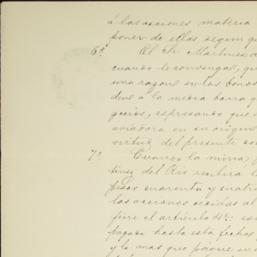 á las acciones materia
poner de ellas segun
6ª El Sr. Martinez d
cuando le convenga, qu
una razon en los bonos
dena á la media barra q
gocios, expresando que
aviadora en su origen
virtud del presente con
7ª Cuando la mina, p
tinez del Rio recibira l
pesos cuarenta y cuatro
las acciones cedidas al
fiere el articulo 4º: can
pagado hasta esta fecha
y lo mas que pague en